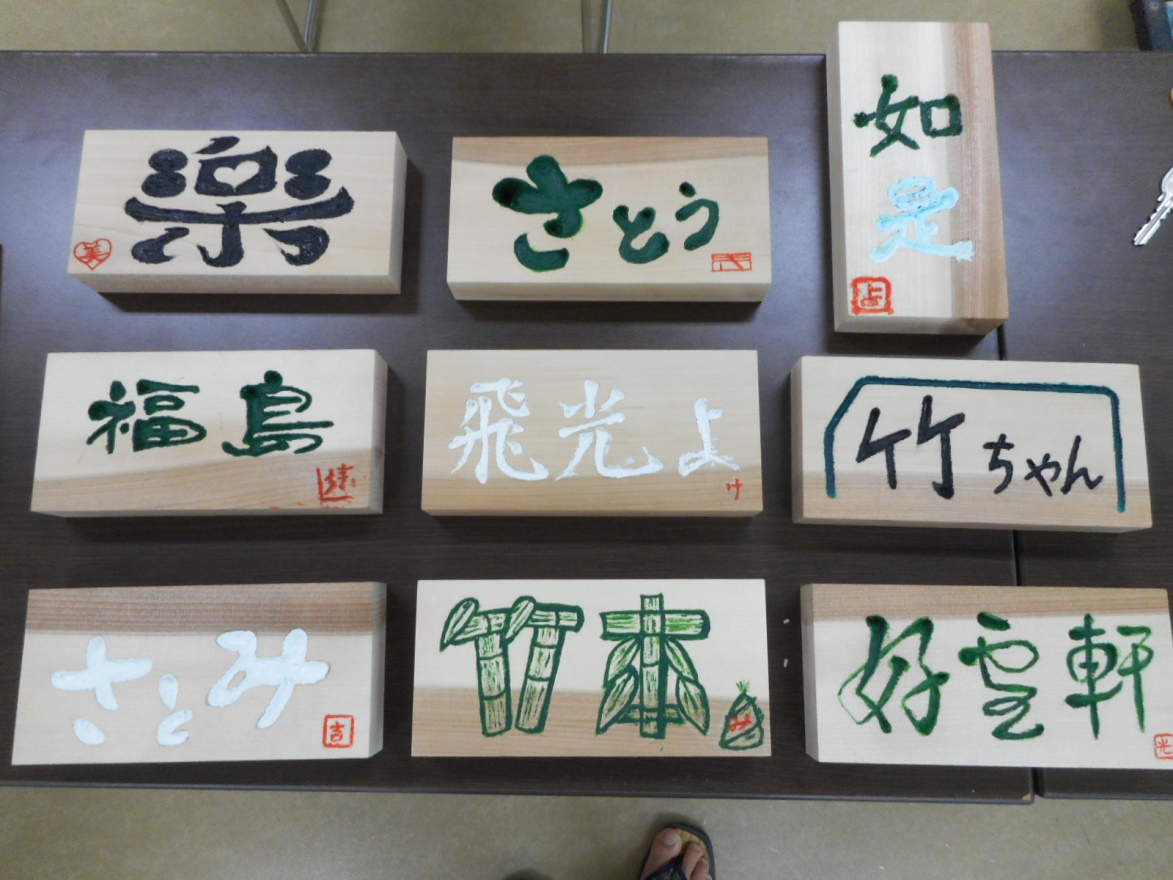 楽
美
さとう
如
是
占
福島
飛光よ
け
竹ちゃん
さとみ
吉
竹本
み
好雲軒
光